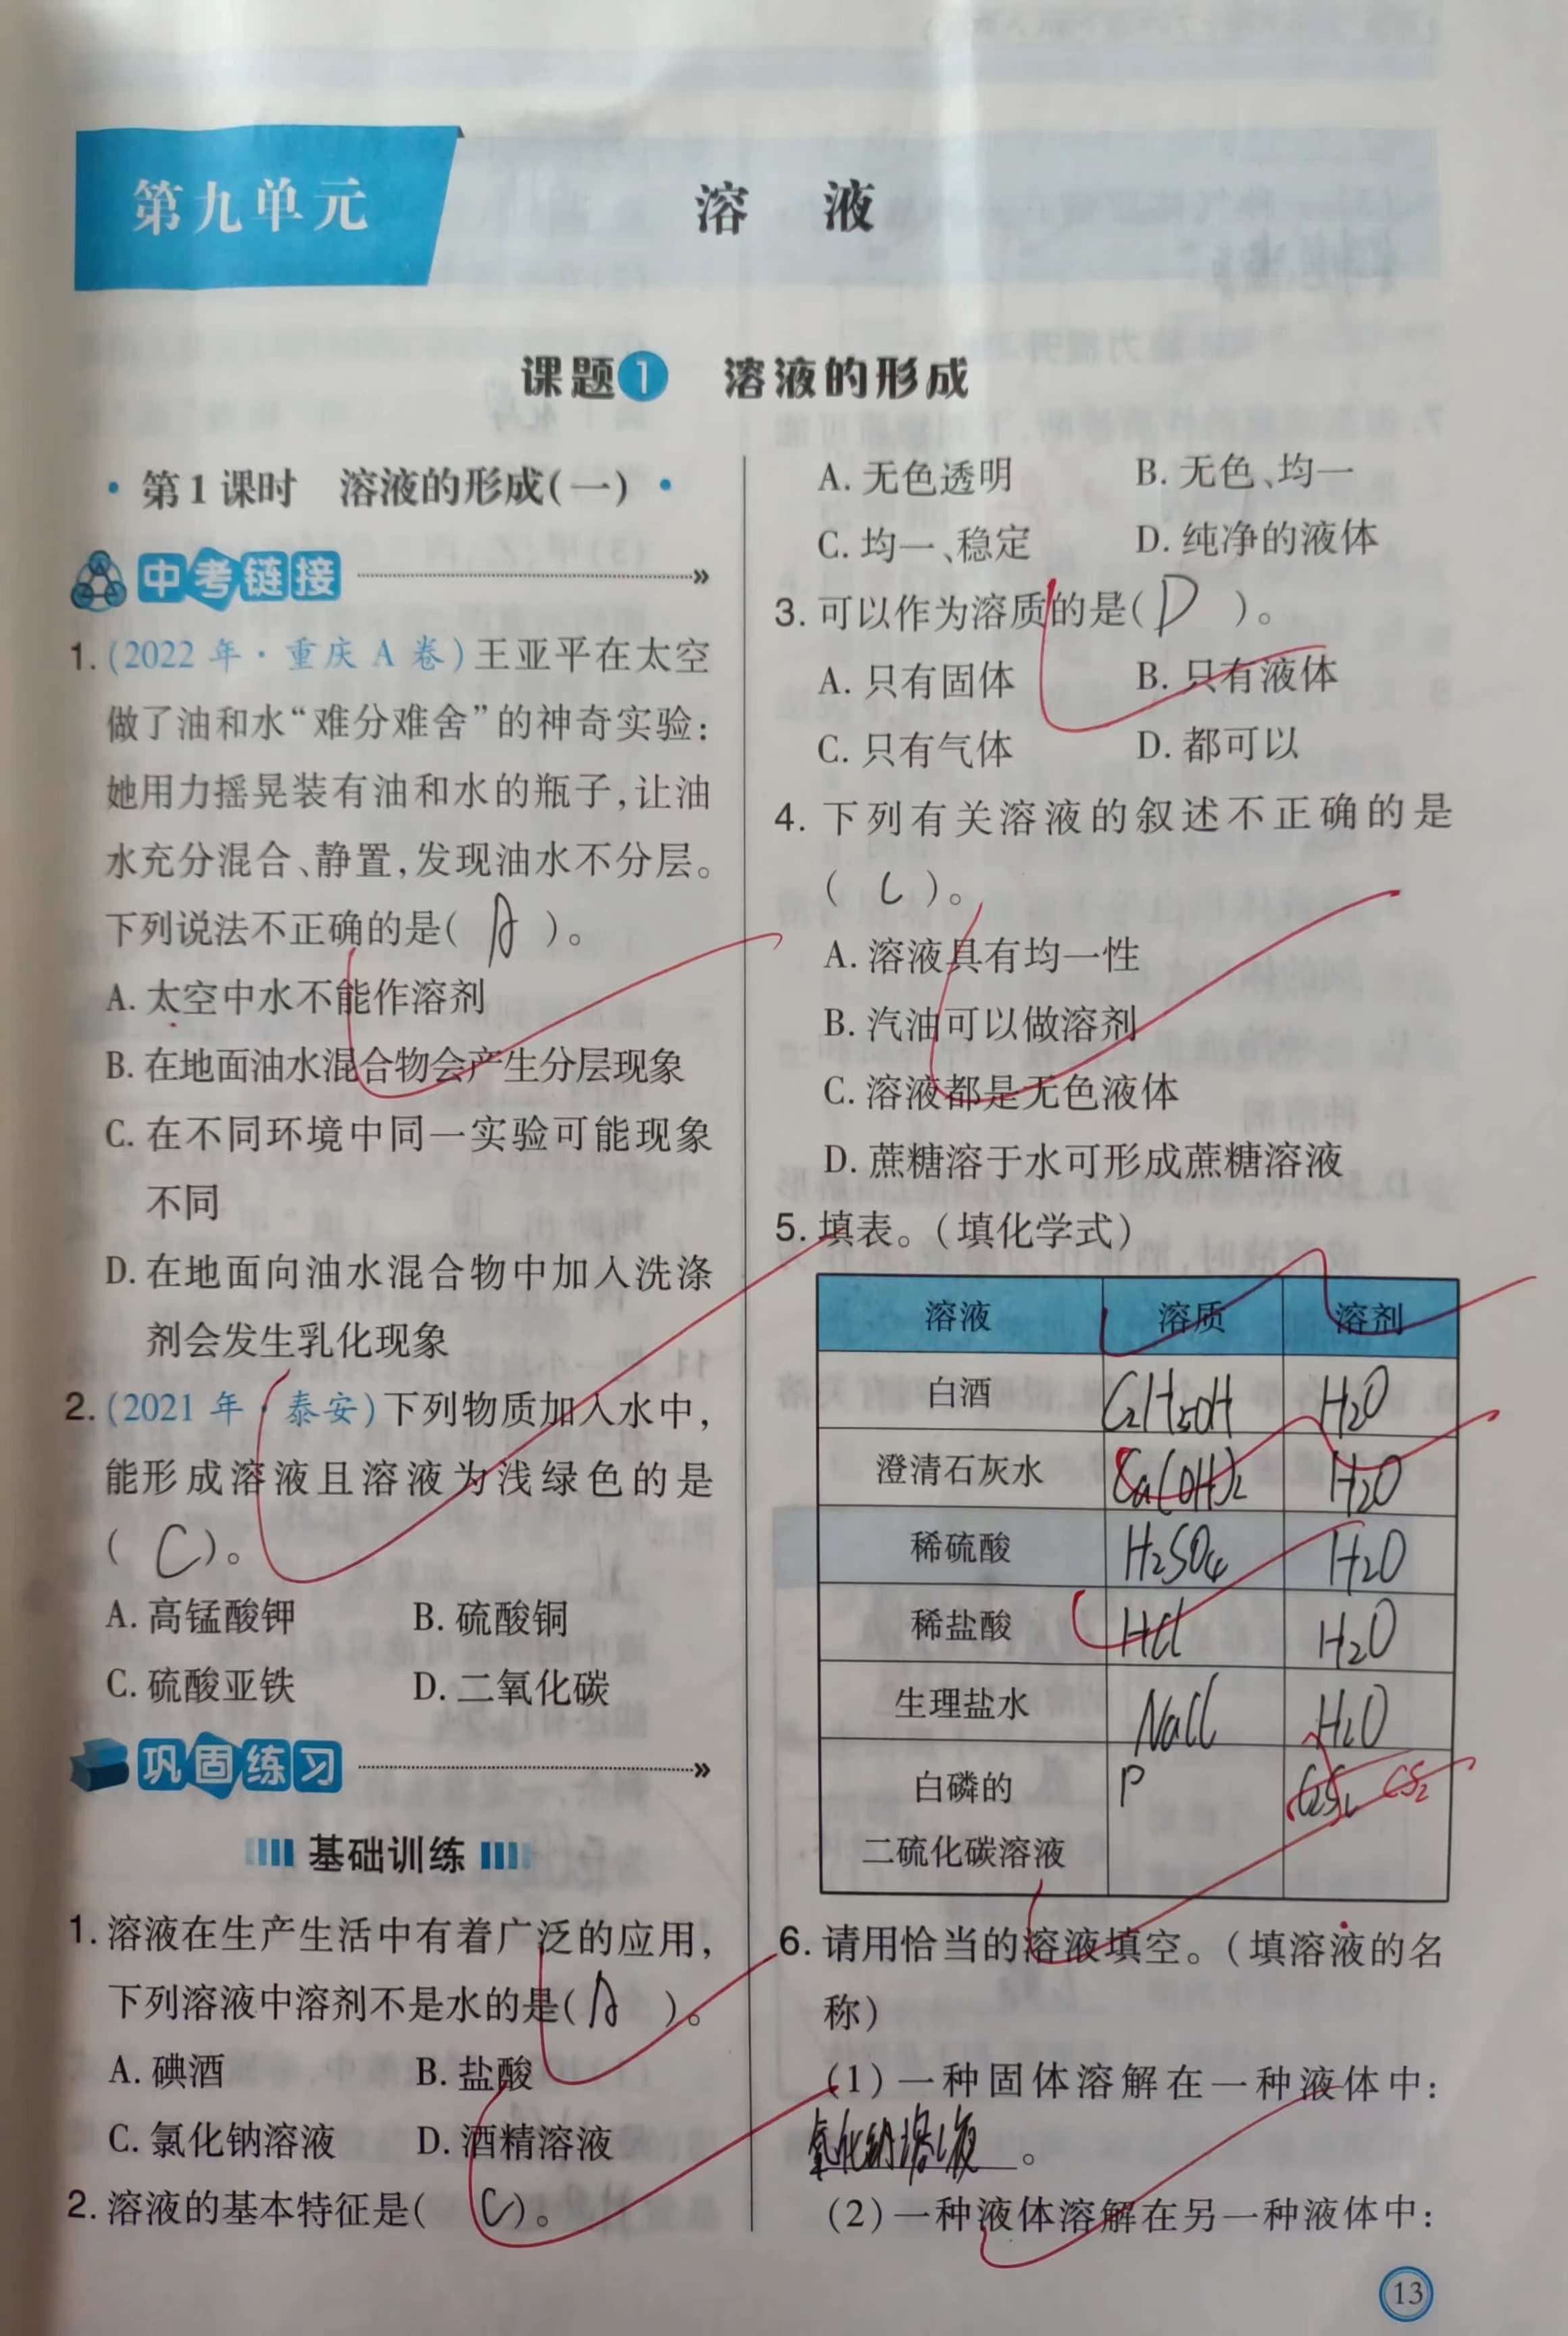 第九单元
溶 液
课题1 溶液的形成
·第1课时 溶液的形成(一)·
中考链接
1.(2022年·重庆A卷)王亚平在太空
做了油和水“难分难舍”的神奇实验:
她用力摇晃装有油和水的瓶子,让油
水充分混合、静置,发现油水不分层。
下列说法不正确的是( A )。
A. 太空中水不能作溶剂
B. 在地面油水混合物会产生分层现象
C. 在不同环境中同一实验可能现象
不同
D. 在地面向油水混合物中加入洗涤
剂会发生乳化现象
2.(2021年·泰安)下列物质加入水中,
能形成溶液且溶液为浅绿色的是
( C )。
A. 高锰酸钾 B. 硫酸铜
C. 硫酸亚铁 D. 二氧化碳
巩固练习
基础训练
1. 溶液在生产生活中有着广泛的应用,
下列溶液中溶剂不是水的是( A )。
A. 碘酒 B. 盐酸
C. 氯化钠溶液 D. 酒精溶液
2. 溶液的基本特征是( C )。
A. 无色透明 B. 无色、均一
C. 均一、稳定 D. 纯净的液体
3. 可以作为溶质的是( D )。
A. 只有固体 B. 只有液体
C. 只有气体 D. 都可以
4. 下列有关溶液的叙述不正确的是
( C )。
A. 溶液具有均一性
B. 汽油可以做溶剂
C. 溶液都是无色液体
D. 蔗糖溶于水可形成蔗糖溶液
5. 填表。(填化学式)
溶液 溶质 溶剂
白酒 C2H5OH H2O
澄清石灰水 Ca(OH)2 H2O
稀硫酸 H2SO4 H2O
稀盐酸 HCl H2O
生理盐水 NaCl H2O
白磷的 P CS2
二硫化碳溶液
6. 请用恰当的溶液填空。(填溶液的名
称)
(1)一种固体溶解在一种液体中:
氯化钠溶液。
(2)一种液体溶解在另一种液体中:
13